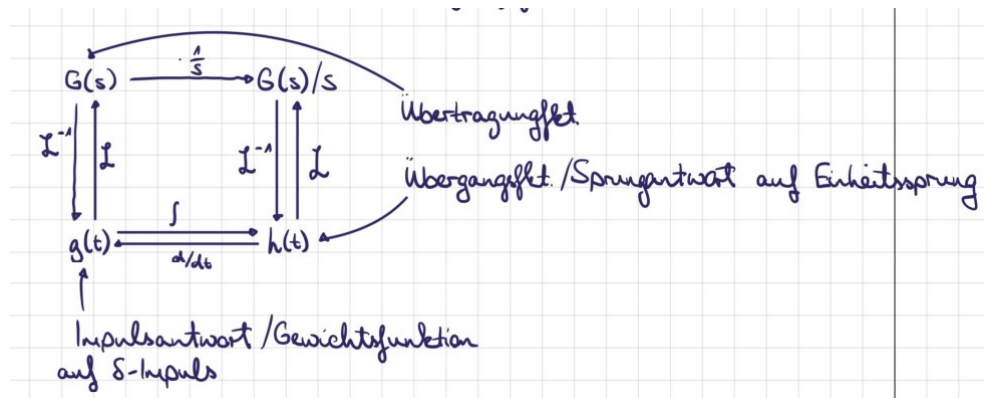 · 1/s
G(s) G(s)/s
Übertragungfkt.
ℒ⁻¹ ℒ ℒ⁻¹ ℒ
Übergangsfkt./Sprungantwort auf Einheitssprung
∫
g(t) h(t)
d/dt
Impulsantwort/Gewichtsfunktion
auf δ-Impuls